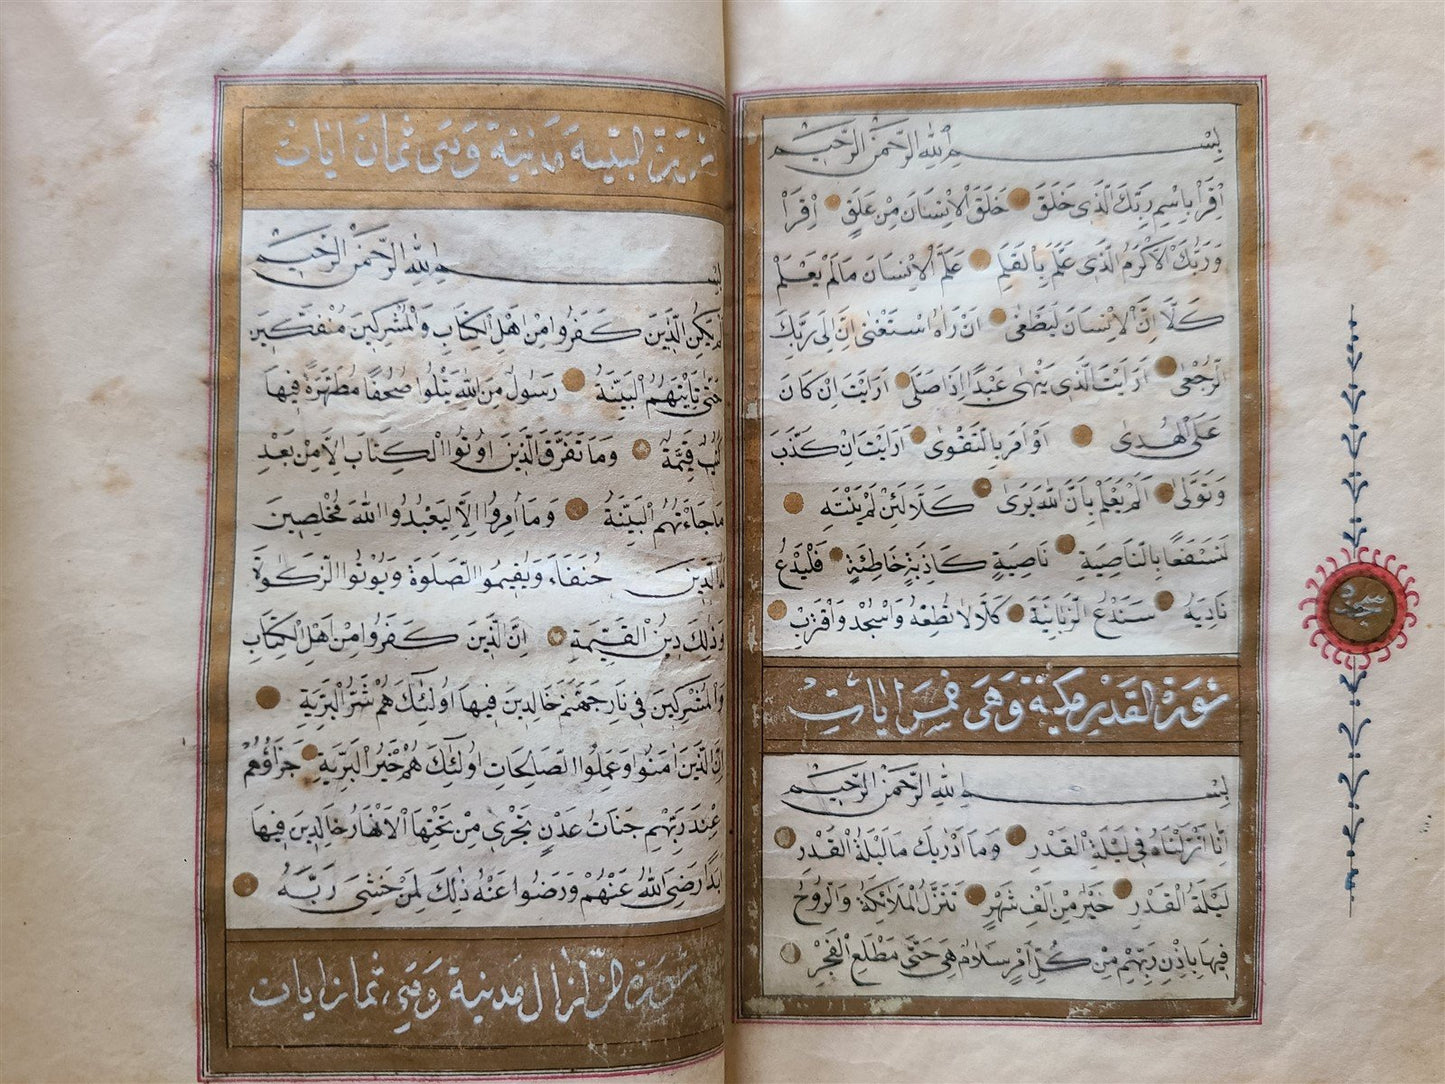 بسم الله الرحمن الرحيم
اقرأ باسم ربك الذى خلق خلق الانسان من علق اقرأ
وربك الاكرم الذى علم بالقلم علم الانسان مالم يعلم
كلا ان الانسان ليطغى ان راه استغنى ان الى ربك
الرجعى ارايت الذى ينهى عبدا اذا صلى ارايت ان كان
على الهدى او امر بالتقوى ارايت ان كذب
وتولى الم يعلم بان الله يرى كلا لئن لم ينته
لنسفعا بالناصية ناصية كاذبة خاطئة فليدع
ناديه سندع الزبانية كلا لا تطعه واسجد واقترب
سورة القدر مكية وهى خمس ايات
بسم الله الرحمن الرحيم
انا انزلناه فى ليلة القدر وما ادريك ما ليلة القدر
ليلة القدر خير من الف شهر تنزل الملائكة والروح
فيها باذن ربهم من كل امر سلام هى حتى مطلع الفجر
سجده
سورة البينة مدنية وهى ثمان ايات
بسم الله الرحمن الرحيم
لم يكن الذين كفروا من اهل الكتاب والمشركين منفكين
حتى تأتيهم البينة رسول من الله يتلوا صحفا مطهرة فيها
كتب قيمة وما تفرق الذين اوتوا الكتاب الا من بعد
ما جاءتهم البينة وما امروا الا ليعبدوا الله مخلصين
له الدين حنفاء ويقيموا الصلوة ويؤتوا الزكوة
وذلك دين القيمة ان الذين كفروا من اهل الكتاب
والمشركين فى نار جهنم خالدين فيها اولئك هم شر البرية
ان الذين امنوا وعملوا الصالحات اولئك هم خير البرية جزاؤهم
عند ربهم جنات عدن تجرى من تحتها الانهار خالدين فيها
ابدا رضى الله عنهم ورضوا عنه ذلك لمن خشى ربه
سورة الزلزال مدنية وهى ثمان ايات